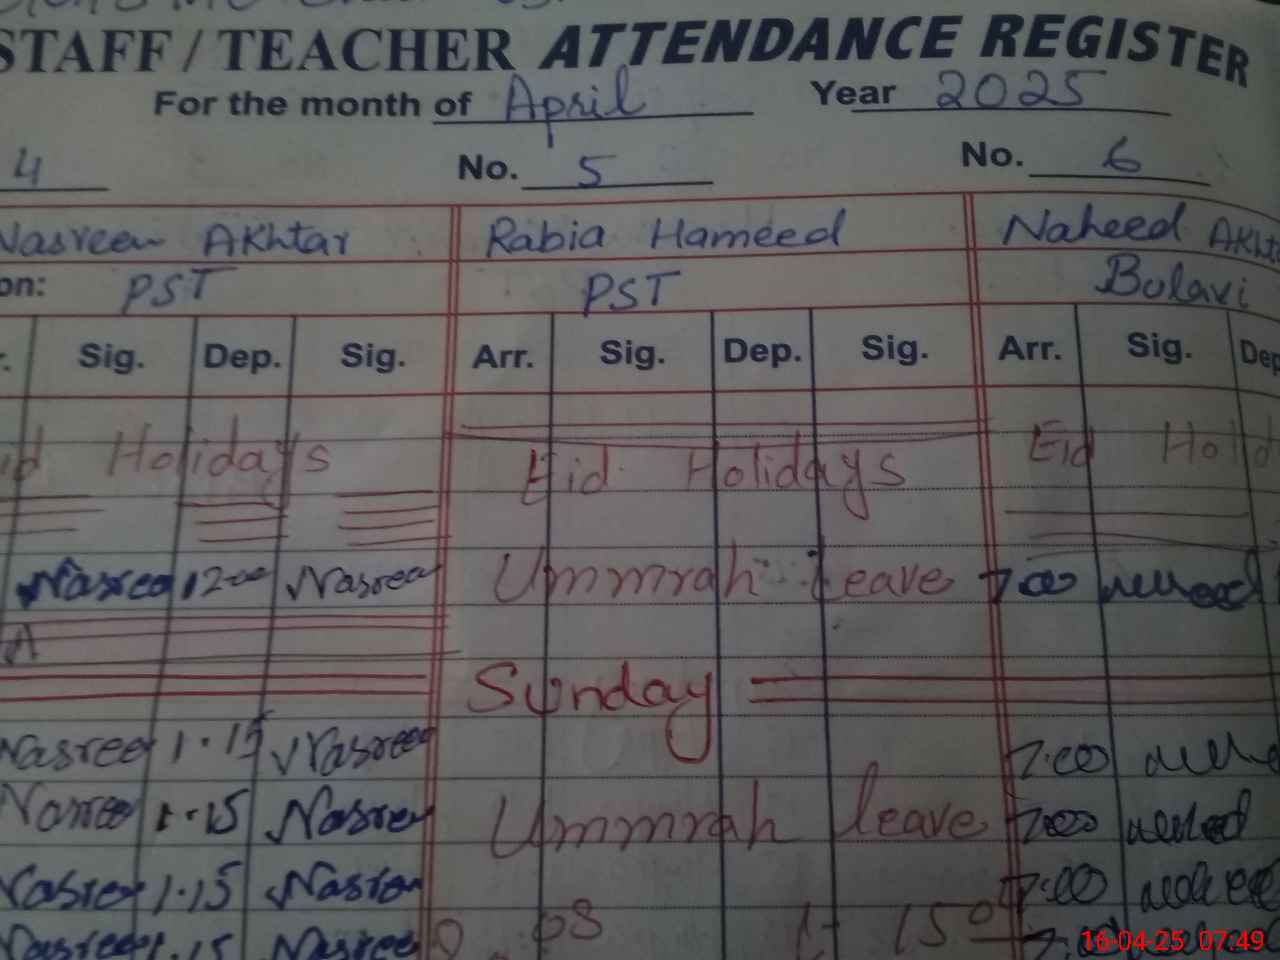 STAFF / TEACHER ATTENDANCE REGISTER
For the month of April Year 2025
4 No. 5 No. 6
Nasreen Akhtar Rabia Hameed Naheed Akht
on: PST PST Bulavi
r. Sig. Dep. Sig. Arr. Sig. Dep. Sig. Arr. Sig. Dep
id Holidays Eid Holidays Eid Holid
Nasreen 12-00 Nasreen Ummrah leave 7:00
A
Sunday
Nasreen 1.15 Nasreen 7:00
Nasreen 1.15 Nasreen Ummrah leave 7:00
Nasreen 1.15 Nasreen 7:00
Nasreen 1.15 Nasreen 08 15
16-04-25 07:49